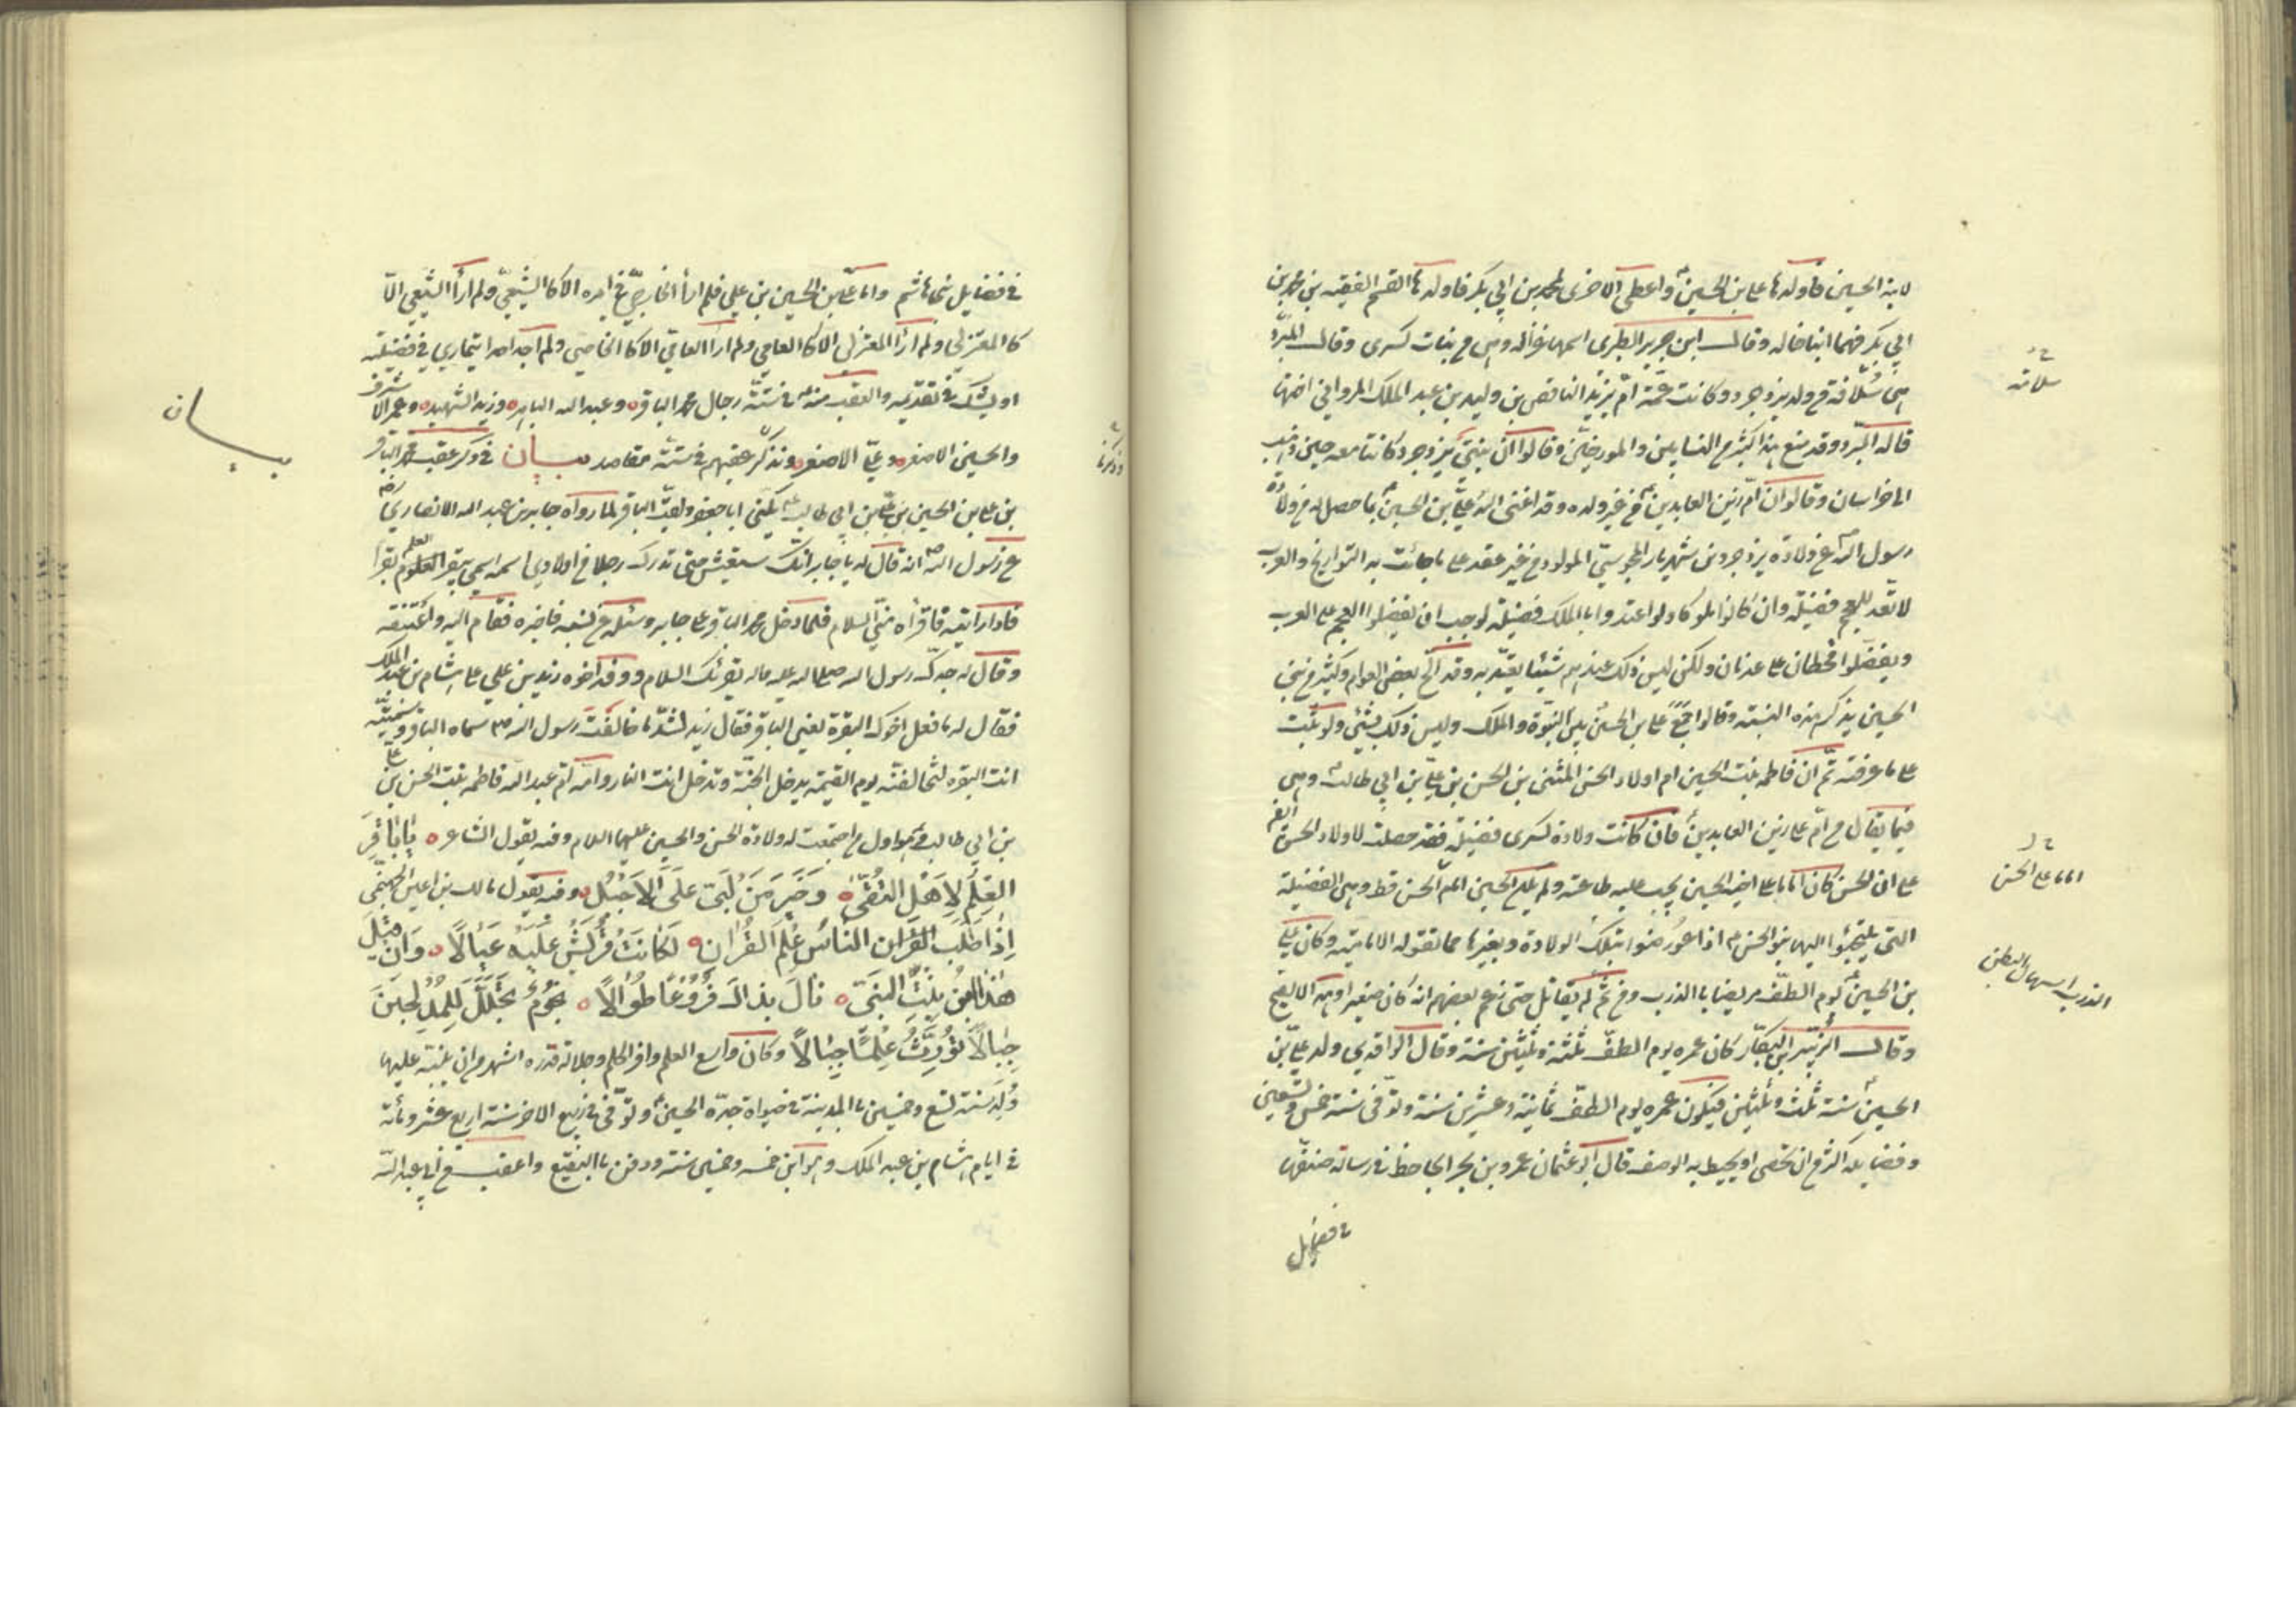 لابنه الحسين فاولدها علي بن الحسين واعطى الاخرى لمحمد بن ابي بكر فاولدها القسم الفقيه بن محمد بن
ابي بكر فهما ابنا خاله وقال ابن جرير الطبرى اسمها غزاله وهى من بنات كسرى وقال المبرد
هى سلافة من ولد يزدجرد وكانت عمته ام يزيد الناقص بن وليد بن عبد الملك المرواني اختها
قاله المبرد وقد منع هذا كثير من النسابين والمورخين وقالوا ان بنتي يزدجرد كانتا معه حين ذهب
الى خراسان وقالوا ان ام زين العابدين من غير ولده وقد اغنى الله علي بن الحسين بما حصل له من ولادة
رسول الله عن ولادة يزدجرد بن شهريار المجوسي المولود من غير عقد على ما جائت به التواريخ والعرب
لا تعد للعجم فضيلة وان كانوا ملوكا ولو اعتدوا بالملك فضيلة لوجب ان يفضلوا العجم على العرب
ويفضلوا قحطان على عدنان ولكن ليس ذلك عندهم شيئا يعتد به وقد الج بعض العوام وكثير من بني
الحسين بذكر هذه النسبة وقالوا جمع علي بن الحسين بين النبوة والملك وليس ذلك بشئ ولو ثبت
على ما عرفته ثم ان فاطمة بنت الحسين ام اولاد الحسن المثنى بن الحسن بن علي بن ابي طالب وهى
فيما يقال من ام علي زين العابدين فان كانت ولادة كسرى فضيلة فقد حصلت لاولاد الحسن ايضا
على ان الحسن كان اماما على اخيه الحسين يجب عليه طاعته ولم يكن الحسين امام الحسن قط وهى الفضيلة
التى يلتجئوا اليها بنو الحسن اذا عورضوا بتلك الولادة وبغيرها مما تقوله الامامية وكان علي
بن الحسين يوم الطف مريضا بالذرب ومن ثم لم يقاتل حتى زعم بعضهم انه كان صغيرا وهذا لا يصح
وقال الزبير بن البكار كان عمره يوم الطف ثلثة وعشرين سنة وقال الواقدي ولد علي بن
الحسين سنة ثلث وثلثين فيكون عمره يوم الطف ثمانية وعشرين سنة وتوفى سنة خمس وتسعين
وفضايله اكثر من ان تحصى او يحيط به الوصف قال ابو عثمان عمرو بن بحر الجاحظ في رسالة صنفها
في فضايل
خ ل
سلامة
خ ل
اماما على الحسن
الذرب اسهال البطن
في فضايل بني هاشم واما علي بن الحسين بن علي فلم ار الخارجي في امره الا كالشيعي ولم ار الشيعي الا
كالمعتزلي ولم ار المعتزلي الا كالعامي ولم ار العامي الا كالخاصي ولم اجد احدا يتمارى في فضيلته
او يشك في تقديمه والعقب منه في ستة رجال محمد الباقر وعبد الله الباهر وزيد الشهيد وعمر الاشرف
والحسين الاصغر وعلي الاصغر ونذكر عقبهم في ستة مقاصد بيان في ذكر عقب محمد الباقر
بن علي بن الحسين بن علي بن ابي طالب يكنى ابا جعفر ولقب الباقر لما رواه جابر بن عبد الله الانصاري
عن رسول الله انه قال له يا جابر انك ستعيش حتى تدرك رجلا من اولادي اسمه اسمي يبقر العلم بقرا
فاذا رايته فاقراه مني السلام فلما دخل محمد الباقر على جابر وسئله عن نسبه فاخبره فقام اليه واعتنقه
وقال له جدك رسول الله صلى الله عليه واله يقرئك السلام ووفد اخوه زيد بن علي على هشام بن عبد الملك
فقال له ما فعل اخوك البقرة يعني الباقر فقال زيد لشد ما خالفت رسول الله سماه الباقر وسميته
انت البقره لتخالفنه يوم القيمة يدخل الجنة وتدخل انت النار وامه ام عبد الله فاطمة بنت الحسن بن علي
بن ابي طالب وهو اول من اجتمعت له ولادة الحسن والحسين عليهما السلام وفيه يقول الشاعر يا باقر
العلم لاهل التقى وخير من لبى على الاجبل وفيه يقول مالك بن اعين الجهني
اذا طلب الناس علم القران كانت قريش عليه عيالا وان قيل
هذا ابن بنت النبى نال بذاك فروعا طوالا نجوم تهلل للمدلجين
جبالا تورث علما جبالا وكان واسع العلم وافر الحلم وجلالة قدره اشهر من ان ينبه عليها
ولد سنة تسع وخمسين بالمدينة في حيوة جده الحسين وتوفى في ربيع الاخر سنة اربع عشر ومائة
في ايام هشام بن عبد الملك وهو ابن خمسة وخمسين سنة ودفن بالبقيع واعقب من ابي عبد الله
بيان